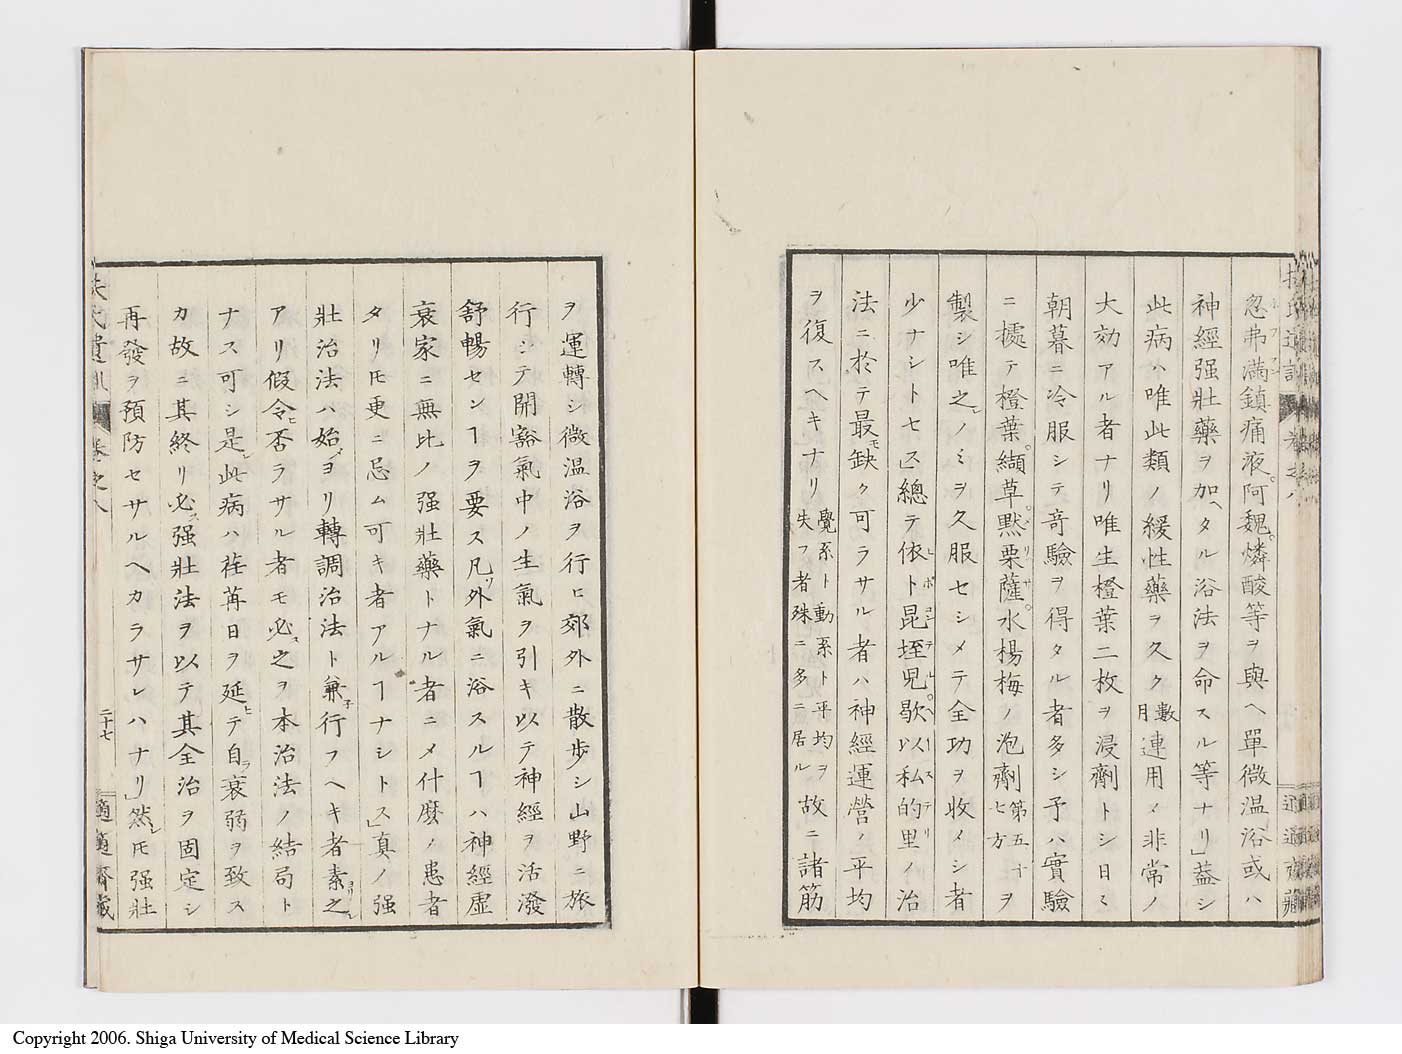 忽弗滿鎮痛液阿魏燐酸等ヲ與ヘ單微温浴或ハ
神經强壯藥ヲ加ヘタル浴法ヲ命スル等ナリ」蓋シ
此病ハ唯此類ノ緩性藥ヲ久ク數月連用メ非常ノ
大効アル者ナリ唯生橙葉二枚ヲ浸劑トシ日ミ
朝暮ニ冷服シテ竒驗ヲ得タル者多シ予ハ實驗
ニ據テ橙葉纈草黙栗薩水楊梅ノ泡劑第五十七方ヲ
製シ唯之ノミヲ久服セシメテ全功ヲ收メシ者
少ナシトセス」總テ依卜昆垤児歇以私的里ノ治
法ニ於テ最モ缺ク可ラサル者ハ神經運營ノ平均
ヲ復スヘキナリ覺系ト動系ト平均ヲ失フ者殊ニ多ニ居ル故ニ諸筋
ヲ運轉シ微温浴ヲ行ヒ郊外ニ散歩シ山野ニ旅
行シテ開豁氣中ノ生氣ヲ引キ以テ神經ヲ活潑
舒暢センヿヲ要ス凡ソ外氣ニ浴スルヿハ神經虛
衰家ニ無比ノ强壯藥トナル者ニメ什麼ノ患者
タリ𪜈更ニ忌ム可キ者アルヿナシトス」真ノ强
壯治法ハ始メヨリ轉調治法ト兼子行フヘキ者素ヨリ之レ
アリ假令ヒ否ラサル者モ必ス之ヲ本治法ノ結局ト
ナス可シ是レ此病ハ荏苒日ヲ延ヒテ自ラ衰弱ヲ致ス
カ故ニ其終リ必ス强壯法ヲ以テ其全治ヲ固定シ
再發ヲ預防セサルヘカラサレハナリ」然レ𪜈强壯
卷之八
二十七
適適齋藏
Copyright 2006. Shiga University of Medical Science Library